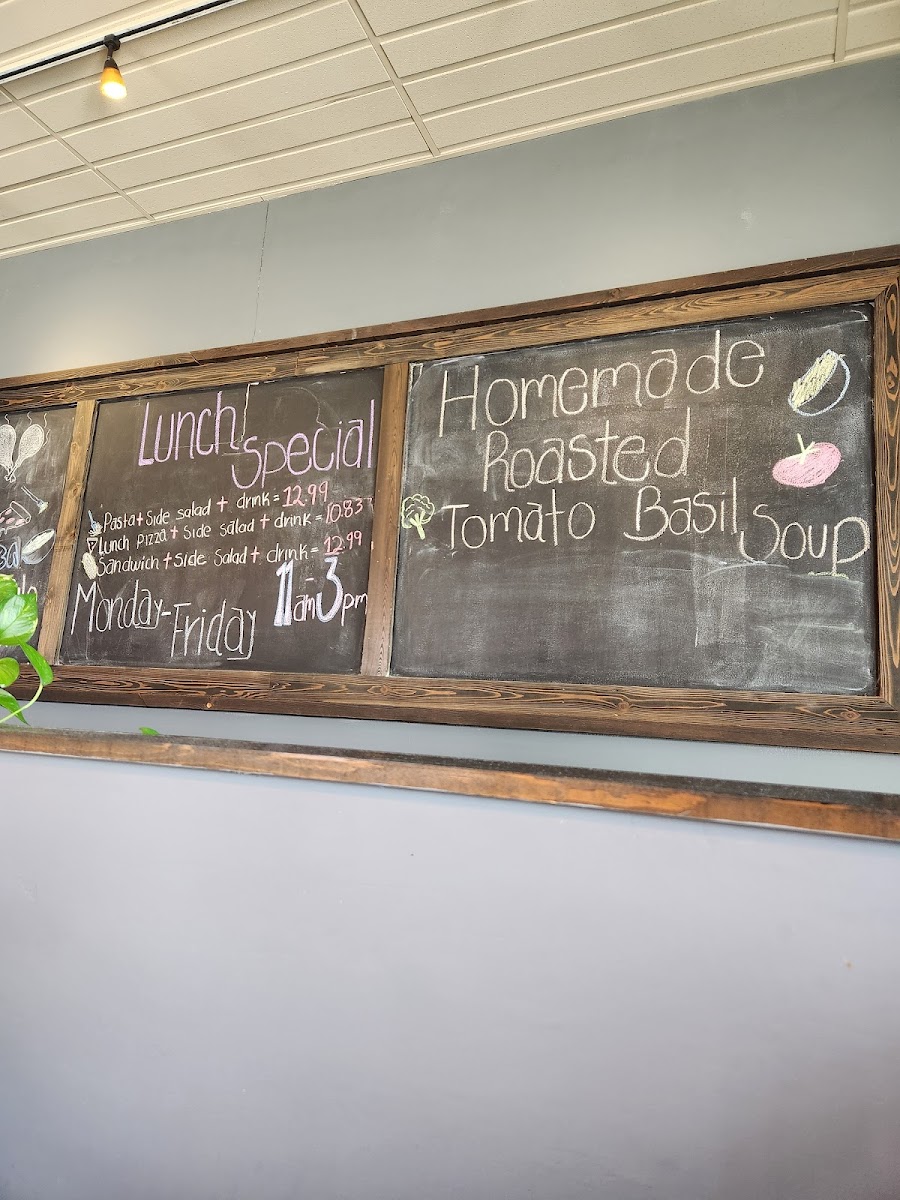 Lunch
Special
Pasta + Side salad + drink = 12.99
Lunch pizza + Side salad + drink = 10.83
Sandwich + Side Salad + drink = 12.99
Monday - Friday 11am - 3pm
Homemade
Roasted
Tomato Basil Soup